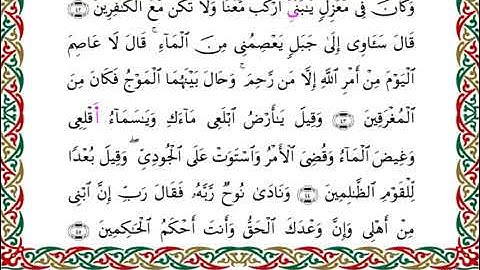 وَكَانَ فِى مَعْزِلٍ يَٰبُنَىَّ ٱرْكَب مَّعَنَا وَلَا تَكُن مَّعَ ٱلْكَٰفِرِينَ ٤٢
قَالَ سَـَٔاوِىٓ إِلَىٰ جَبَلٍ يَعْصِمُنِى مِنَ ٱلْمَآءِ ۚ قَالَ لَا عَاصِمَ
ٱلْيَوْمَ مِنْ أَمْرِ ٱللَّهِ إِلَّا مَن رَّحِمَ ۚ وَحَالَ بَيْنَهُمَا ٱلْمَوْجُ فَكَانَ مِنَ
ٱلْمُغْرَقِينَ ٤٣ وَقِيلَ يَٰٓأَرْضُ ٱبْلَعِى مَآءَكِ وَيَٰسَمَآءُ أَقْلِعِى
وَغِيضَ ٱلْمَآءُ وَقُضِىَ ٱلْأَمْرُ وَٱسْتَوَتْ عَلَى ٱلْجُودِىِّ ۖ وَقِيلَ بُعْدًا
لِّلْقَوْمِ ٱلظَّٰلِمِينَ ٤٤ وَنَادَىٰ نُوحٌ رَّبَّهُۥ فَقَالَ رَبِّ إِنَّ ٱبْنِى
مِنْ أَهْلِى وَإِنَّ وَعْدَكَ ٱلْحَقُّ وَأَنتَ أَحْكَمُ ٱلْحَٰكِمِينَ ٤٥